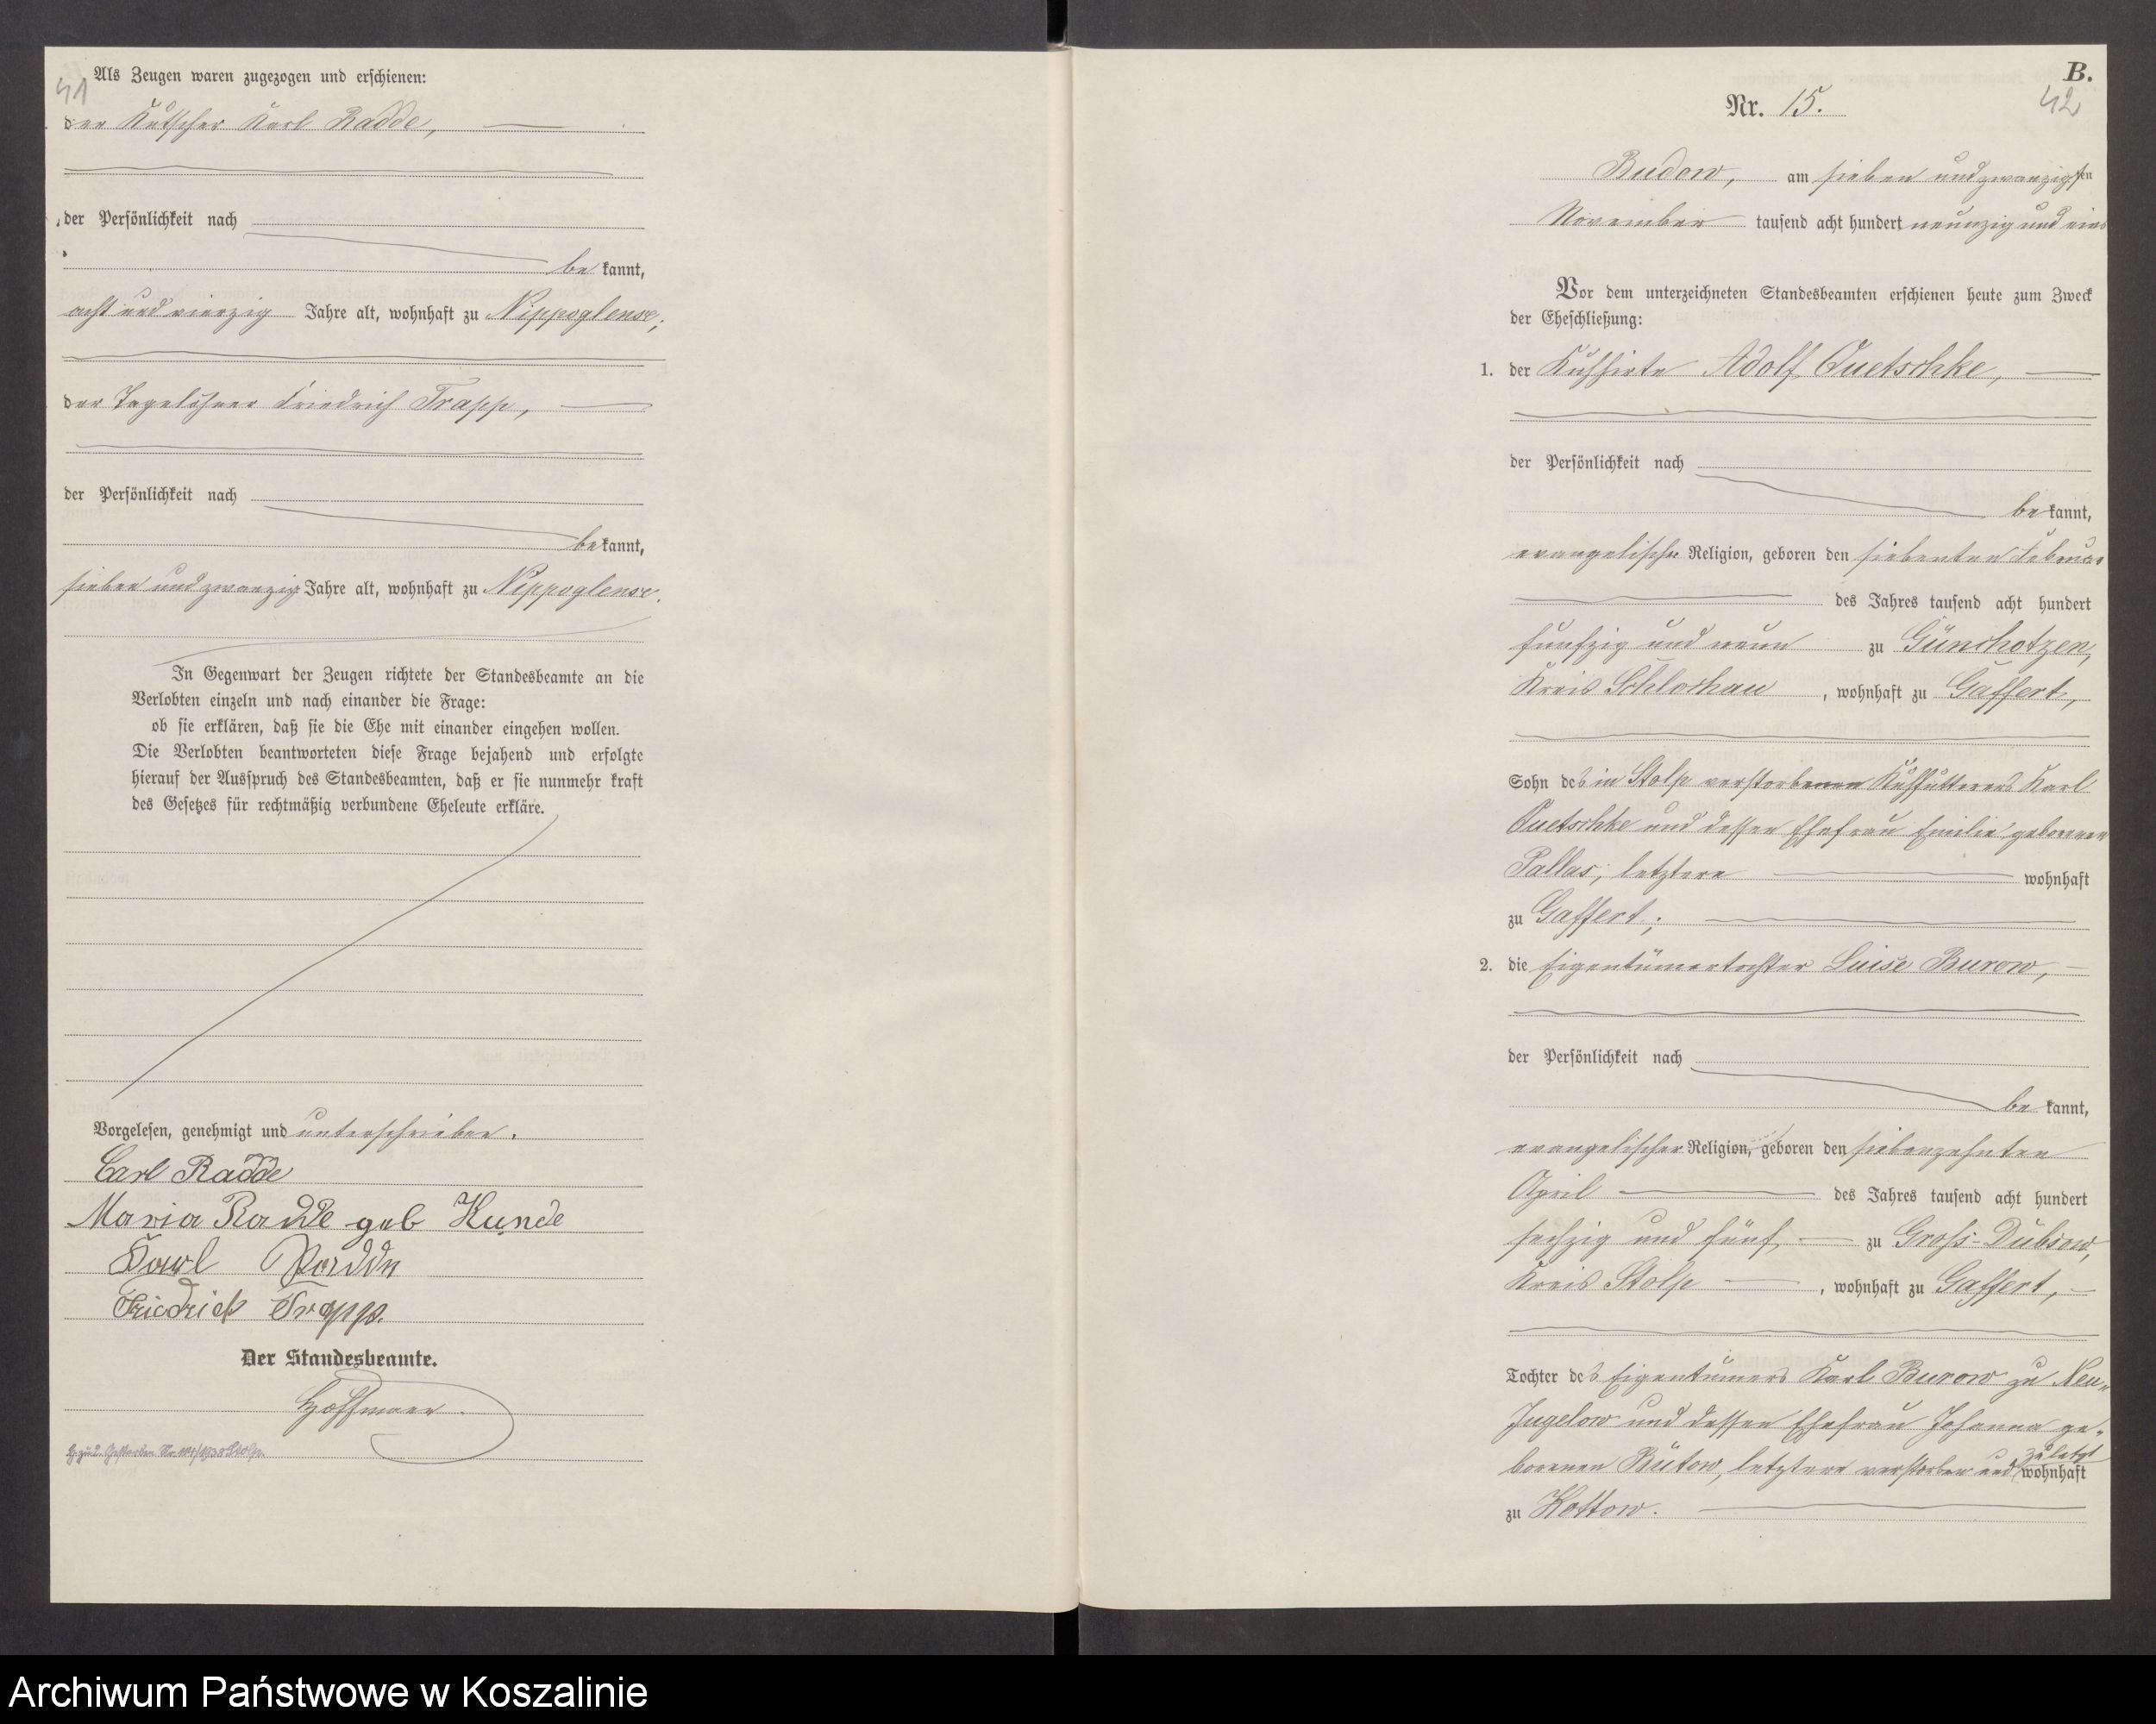 41
Als Zeugen waren zugezogen und erschienen:
der Kutscher Karl Radde,
der Persönlichkeit nach
be kannt,
acht und vierzig Jahre alt, wohnhaft zu Nippoglense;
der Tagelöhner Friedrich Trapp,
der Persönlichkeit nach
be kannt,
sieben und zwanzig Jahre alt, wohnhaft zu Nippoglense.
In Gegenwart der Zeugen richtete der Standesbeamte an die
Verlobten einzeln und nach einander die Frage:
ob sie erklären, daß sie die Ehe mit einander eingehen wollen.
Die Verlobten beantworteten diese Frage bejahend und erfolgte
hierauf der Ausspruch des Standesbeamten, daß er sie nunmehr kraft
des Gesetzes für rechtmäßig verbundene Eheleute erkläre.
Vorgelesen, genehmigt und unterschrieben.
Carl Radde
Maria Radde geb Kunde
Karl Radde
Friedrich Trapp.
Der Standesbeamte.
Hoffmann.
Gestorben Nr.
B.
42
Nr. 15.
Budow, am sieben und zwanzigsten
November tausend acht hundert neunzig und eins
Vor dem unterzeichneten Standesbeamten erschienen heute zum Zweck
der Eheschließung:
1. der Kuhhirte Adolf Quetschke,
der Persönlichkeit nach
be kannt,
evangelischer Religion, geboren den siebenten Februar
des Jahres tausend acht hundert
fünfzig und neun zu Günchotzen,
Kreis Schlochau, wohnhaft zu Gaffert,
Sohn des in Stolp verstorbenen Kuhfütterers Karl
Quetschke und dessen Ehefrau Emilie geborenen
Pallas; letztere wohnhaft
zu Gaffert;
2. die Eigentümertochter Luise Burow,
der Persönlichkeit nach
be kannt,
evangelischer Religion, geboren den siebenzehnten
April des Jahres tausend acht hundert
sechzig und fünf zu Groß-Dübsow,
Kreis Stolp, wohnhaft zu Gaffert,
Tochter des Eigentümers Karl Burow zu Neu-
Jugelow und dessen Ehefrau Johanna ge-
borenen Bütow, letztere verstorben und zuletzt wohnhaft
zu Kottow.
Archiwum Państwowe w Koszalinie